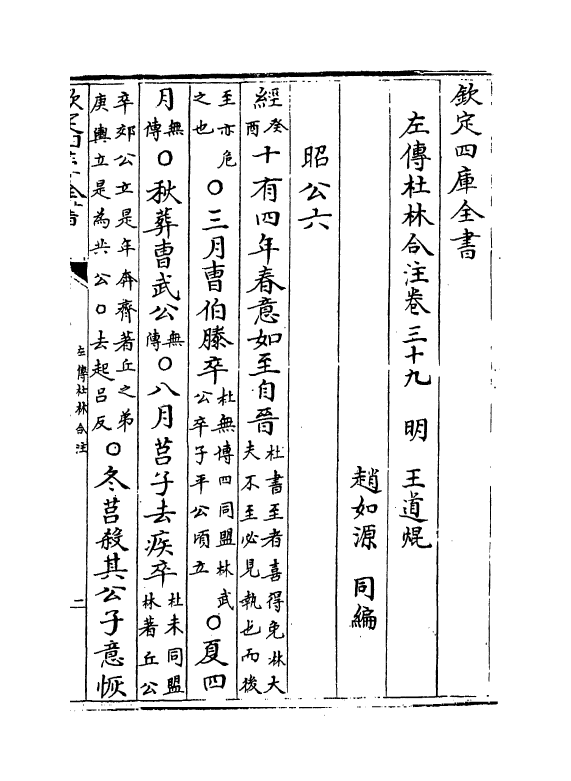 欽定四庫全書
左傳杜林合注卷三十九 明 王道焜
趙如源 同編
昭公六
經癸酉十有四年春意如至自晉杜書至者喜得免林大夫不至必見執也而後
至亦危之也○三月曹伯滕卒杜無傳四同盟林武公卒子平公頃立○夏四
月無傳○秋葬曹武公無傳○八月莒子去疾卒杜未同盟林著丘公
卒郊公立是年奔齊著丘之弟庚輿立是為共公○去起呂反○冬莒殺其公子意恢
左傳杜林合注
二